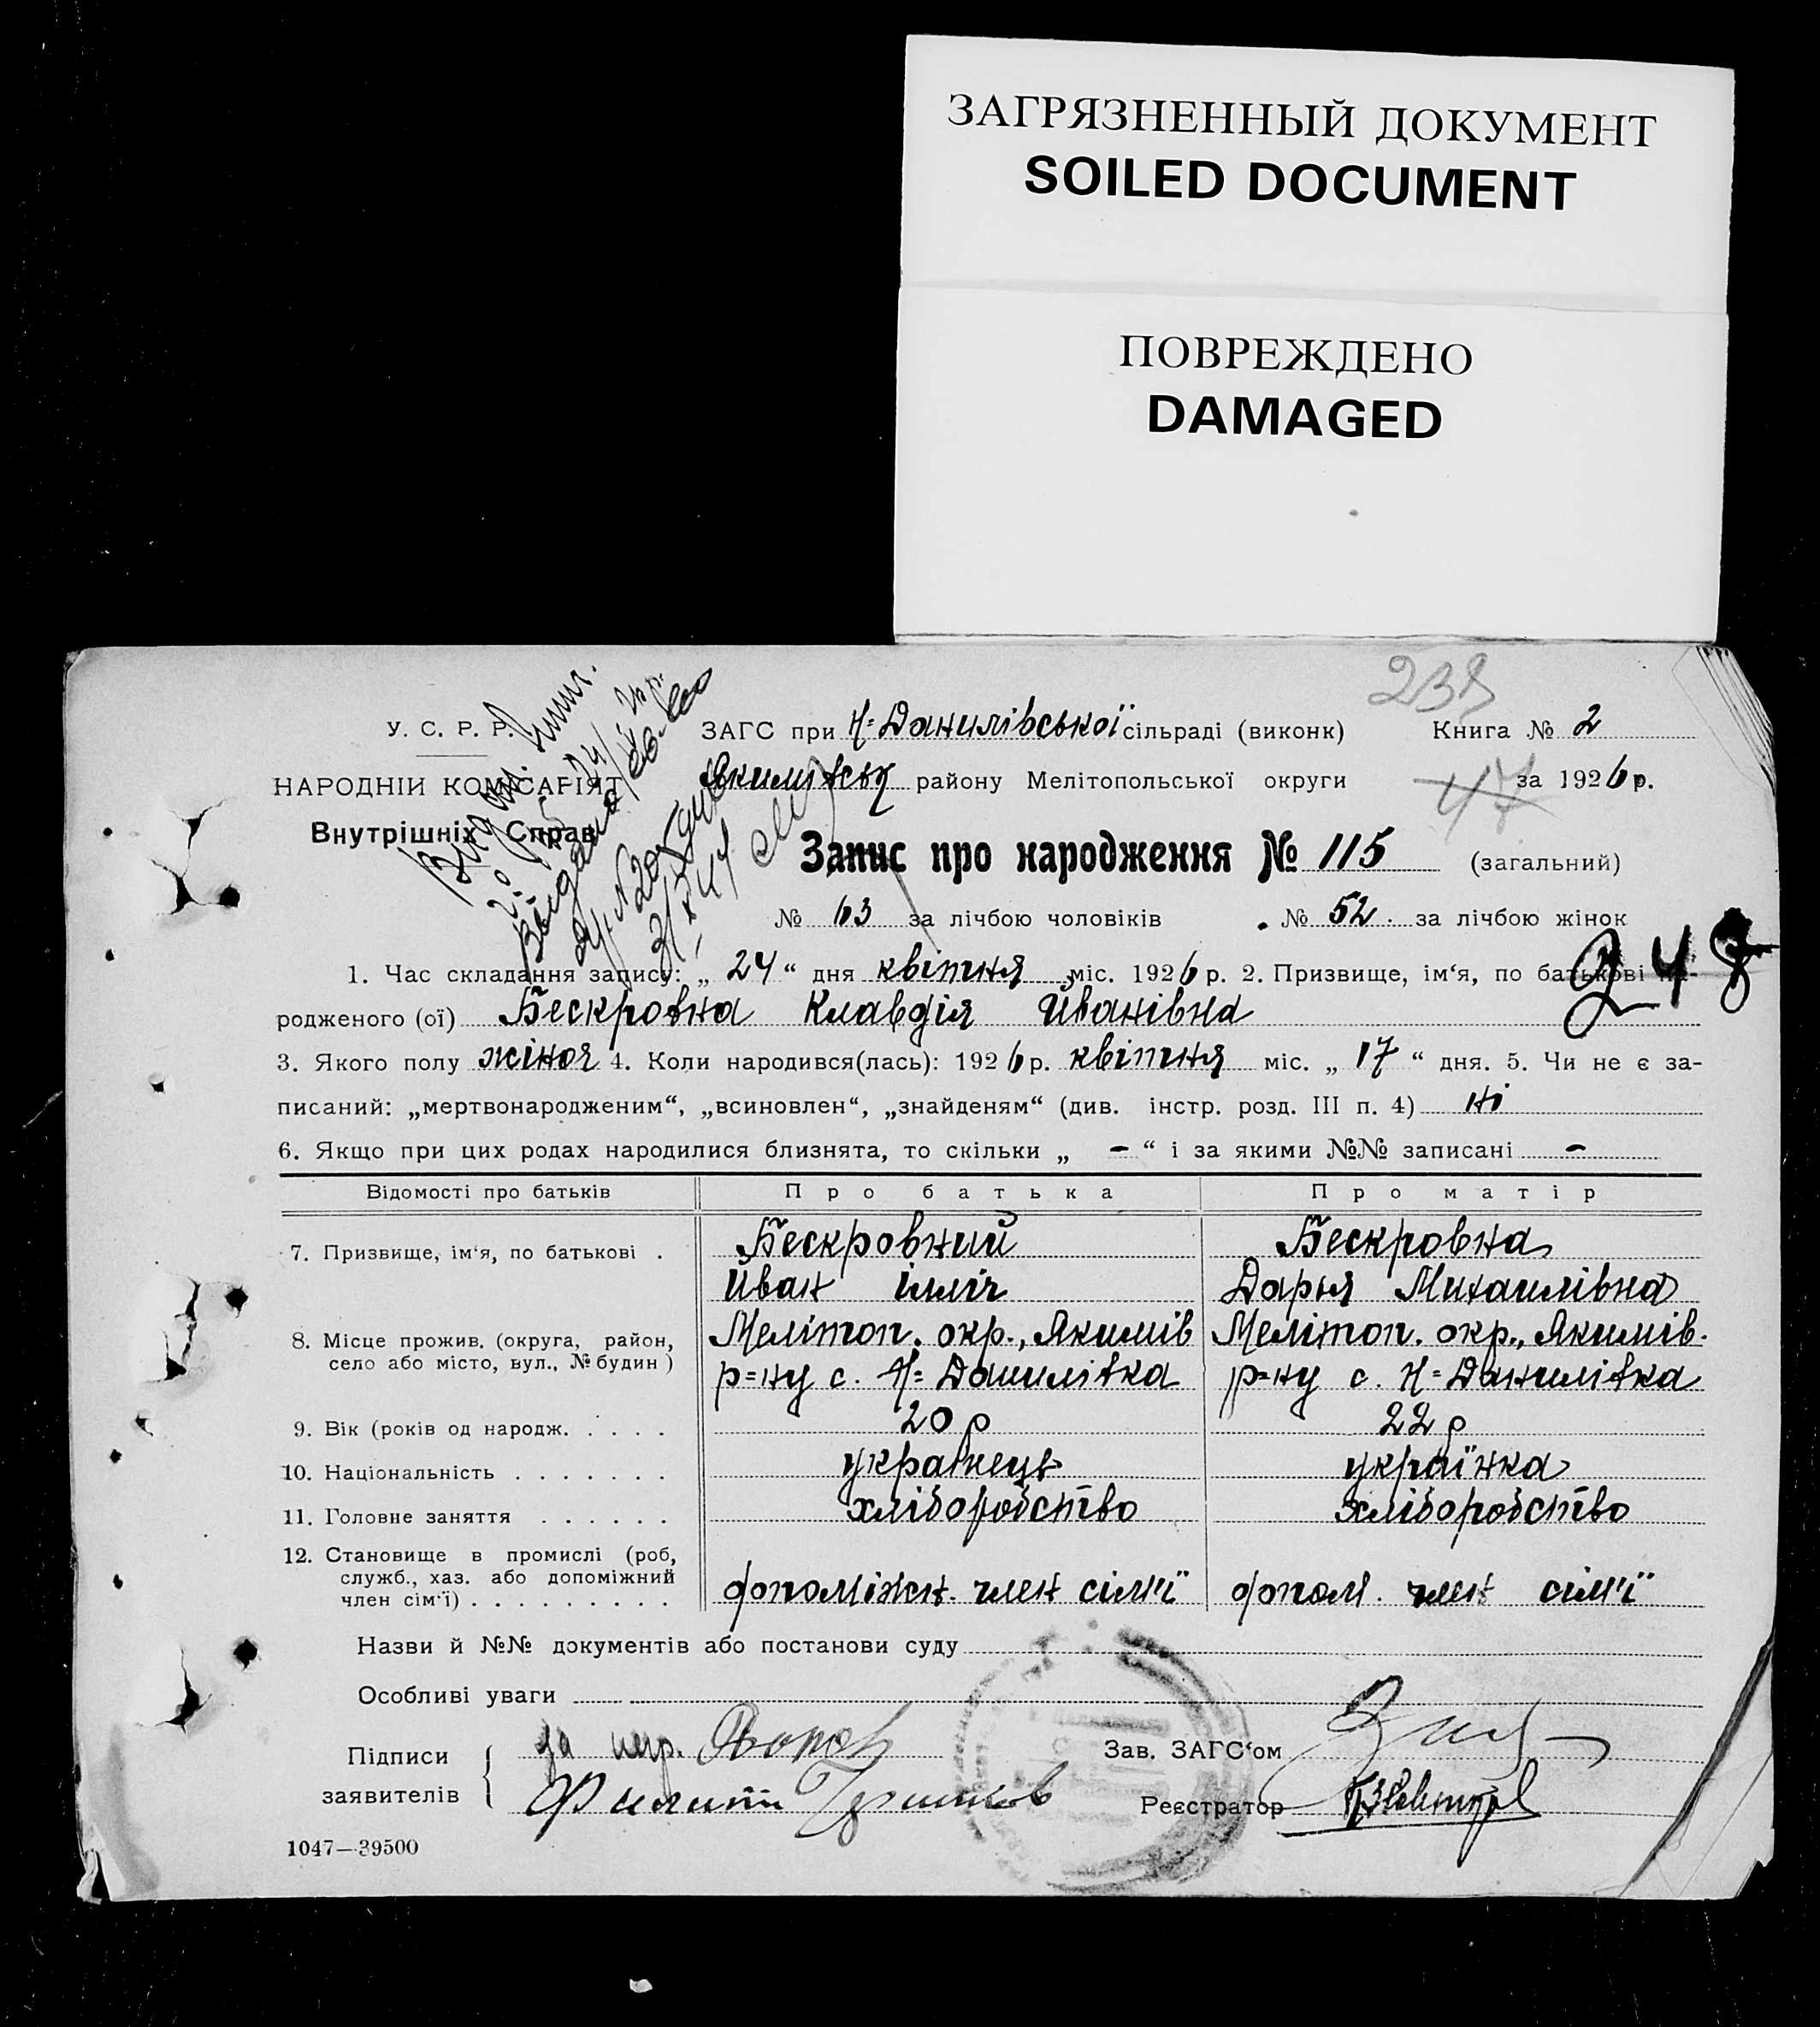 ЗАГРЯЗНЕННЫЙ ДОКУМЕНТ
SOILED DOCUMENT
ПОВРЕЖДЕНО
DAMAGED
238
У. С. Р. Р.
ЗАГС при Н=Данилівської сільраді (виконк) Книга № 2
НАРОДНІЙ КОМІСАРІЯТ
Якимівськ району Мелітопольської округи за 1926 р.
47
Внутрішніх Справ
Запис про народження № 115 (загальний)
№ 63 за лічбою чоловіків № 52. за лічбою жінок
248
1. Час складання запису: „ 24 “ дня квітня міс. 1926 р. 2. Призвище, ім‘я, по батькові на-
родженого (ої) Бескровна Клавдія Иванівна
3. Якого полу жіноч 4. Коли народився(лась): 1926 р. квітня міс. „ 17 “ дня. 5. Чи не є за-
писаний: „мертвонародженим“, „всиновлен“, „знайденям“ (див. інстр. розд. III п. 4) ні
6. Якщо при цих родах народилися близнята, то скільки „ – “ і за якими №№ записані –
Відомості про батьків Про батька Про матір
7. Призвище, ім‘я, по батькові . Бескровний Бескровна
Иван Ілліч Дарья Михаилівна
8. Місце прожив. (округа, район, Меліт​оп. окр., Якимів Мелітоп. окр., Якимів.
село або місто, вул., № будин ) р=ну с. Н=Данилівка р=ну с. Н=Данилівка
9. Вік (років од народж. . . . . 20 р 22 р
10. Національність . . . . . . . українець українка
11. Головне заняття . . . . . . хліборобство хліборобство
12. Становище в промислі (роб,
служб., хаз. або допоміжний допоміжн. член сім'ї допом. член сім'ї
член сім‘ї) . . . . . . . . .
Назви й №№ документів або постанови суду
Особливі уваги
Підписи за негр. Зав. ЗАГС‘ом
заявителів Филипп Реєстратор
1047—39500